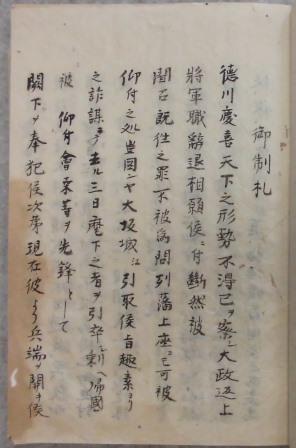 御制札
徳川慶喜天下之形勢不得已ヲ察シ大政返上
將軍職辭退相願候ニ付斷然被
聞召既往之罪不被為問列藩上座ニモ可被
仰付之処豈図ンヤ大坂城江引取候旨趣素ヨリ
之詐謀ニテ去ル三日麾下之者ヲ引卒シ剰ヘ帰國
被 仰付會桒等ヲ先鋒トシテ
闕下ヲ奉犯候次第現在彼ヨリ兵端ヲ開キ候